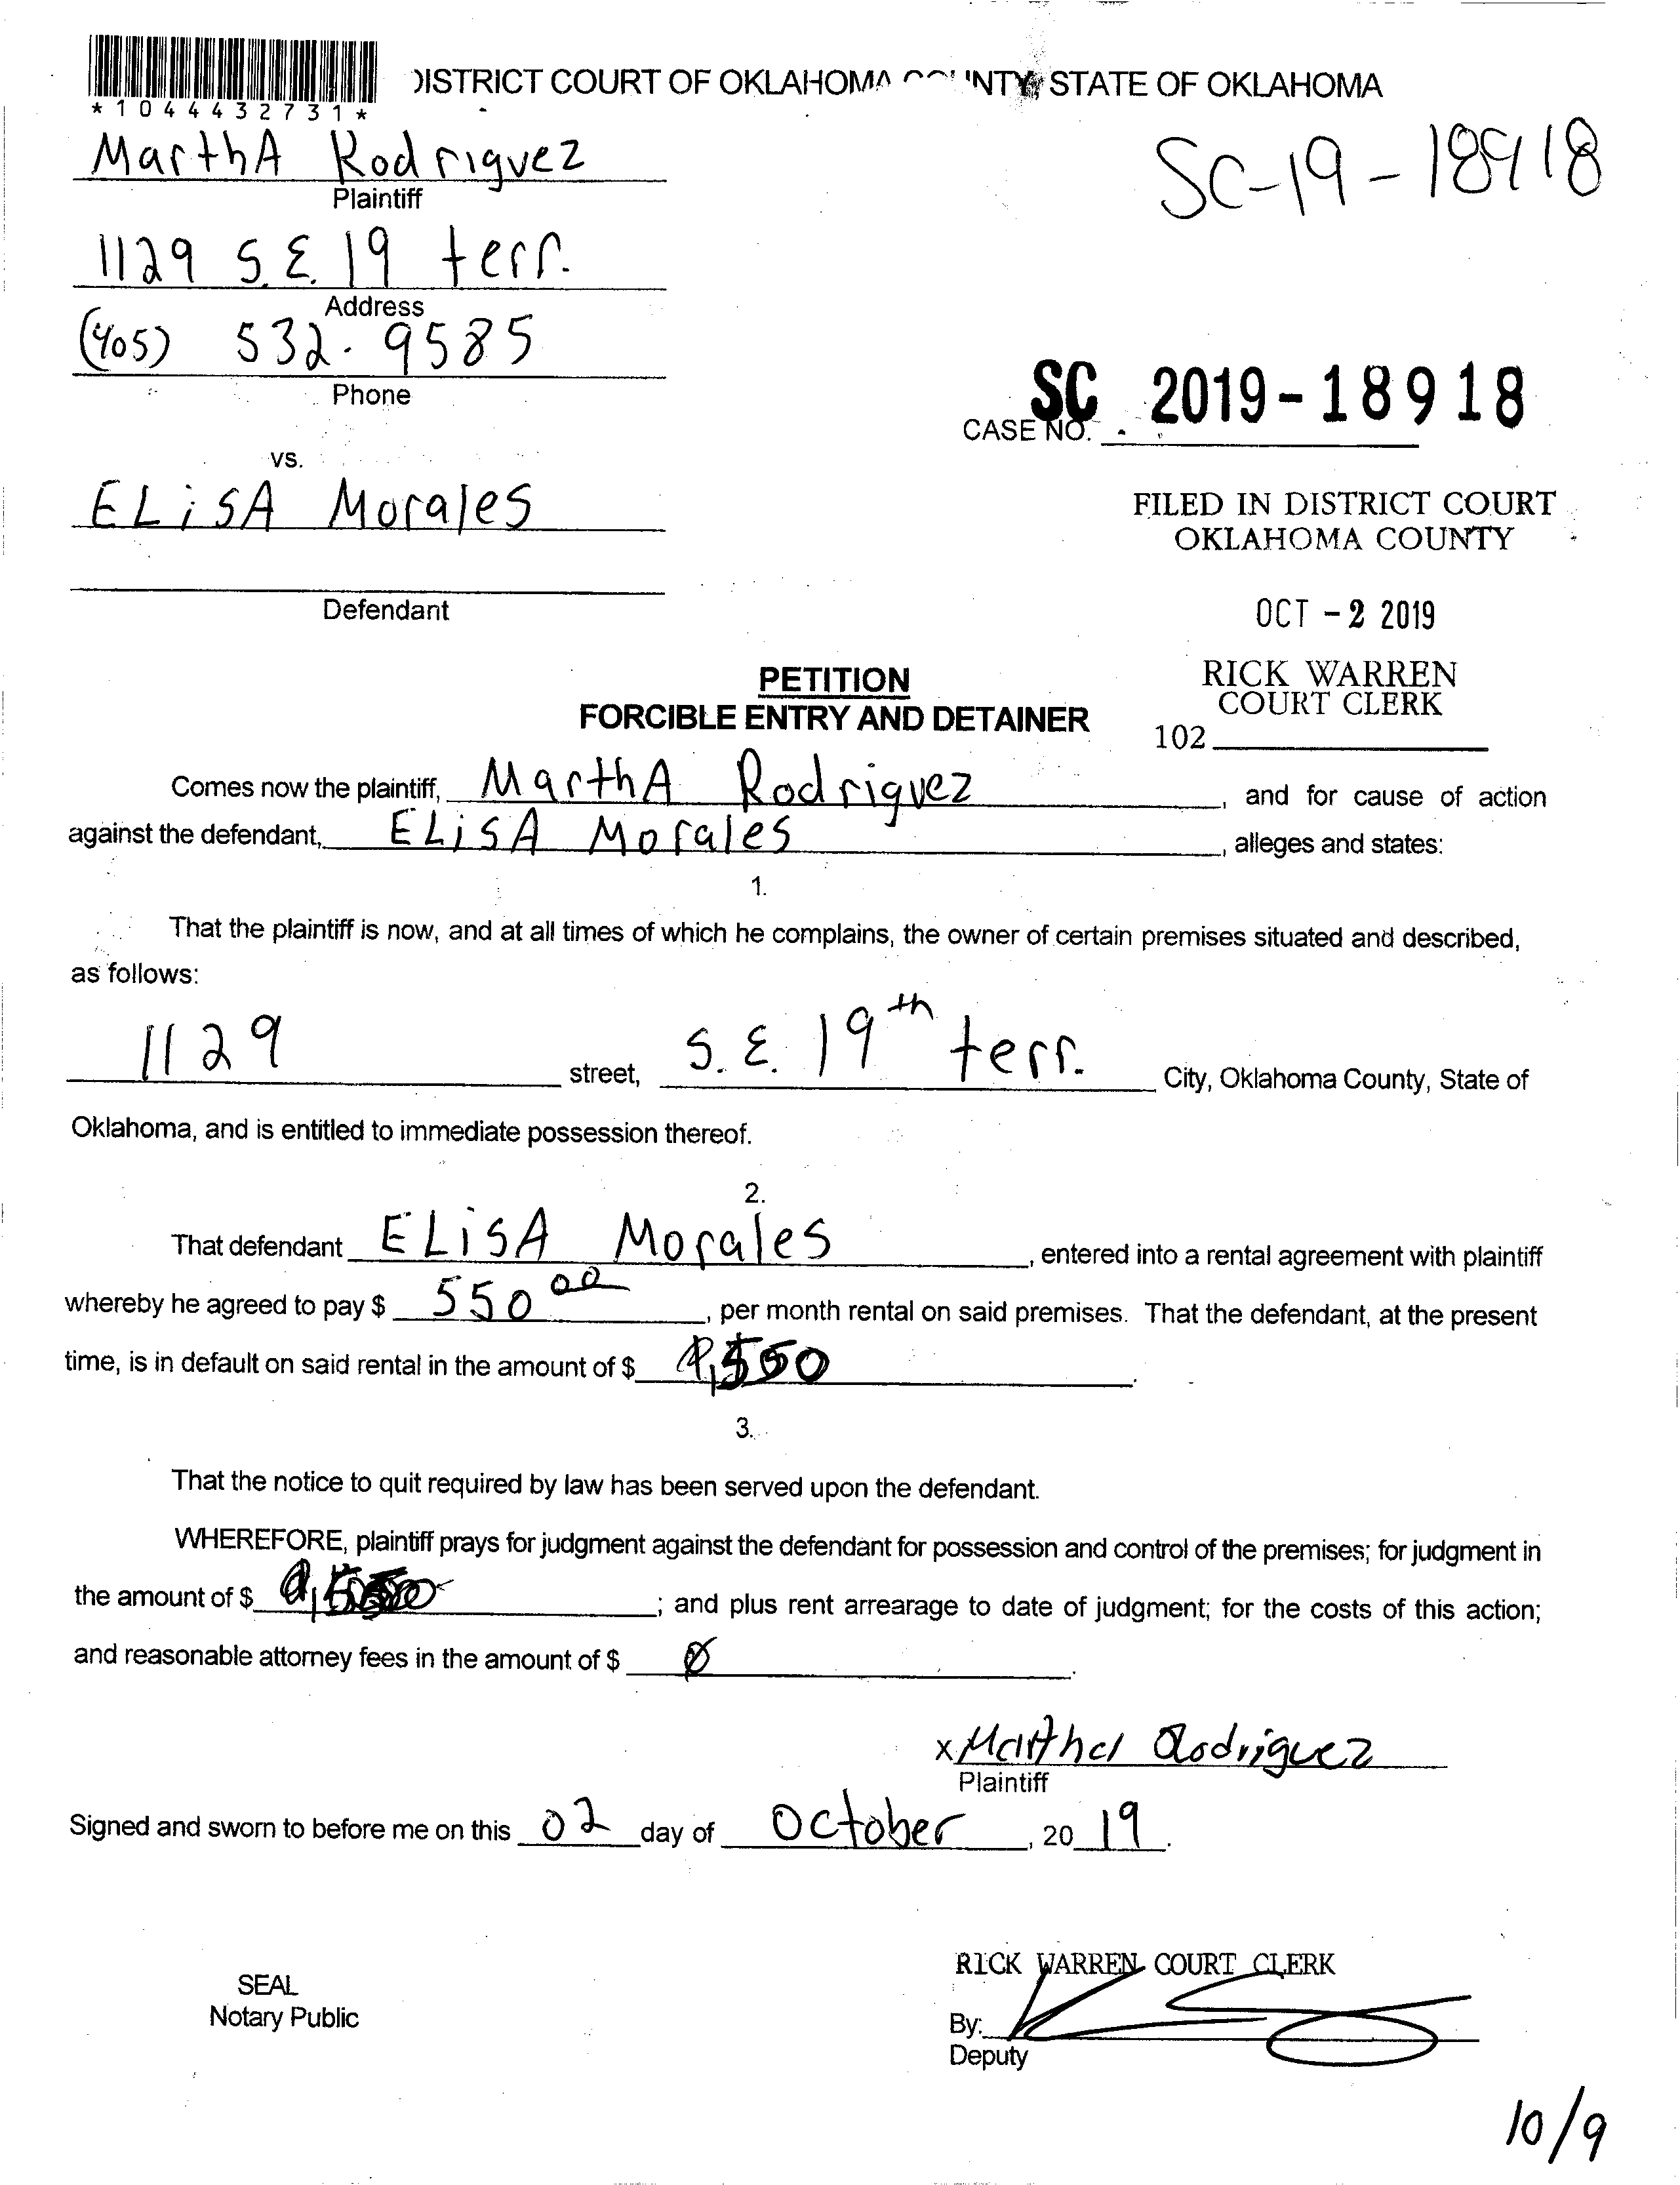 *1044432731*
DISTRICT COURT OF OKLAHOMA COUNTY, STATE OF OKLAHOMA
MarthA Rodriguez
Plaintiff
SC-19-18918
1129 S.E. 19 terr.
Address
(405) 532-9585
Phone
SC 2019-18918
CASE NO.
vs.
ELiSA Morales
Defendant
FILED IN DISTRICT COURT
OKLAHOMA COUNTY
OCT - 2 2019
RICK WARREN
COURT CLERK
102
PETITION
FORCIBLE ENTRY AND DETAINER
Comes now the plaintiff, MarthA Rodriguez, and for cause of action
against the defendant, ELiSA Morales, alleges and states:
1.
That the plaintiff is now, and at all times of which he complains, the owner of certain premises situated and described,
as follows:
1129 street, S.E. 19th terr. City, Oklahoma County, State of
Oklahoma, and is entitled to immediate possession thereof.
2.
That defendant ELiSA Morales, entered into a rental agreement with plaintiff
whereby he agreed to pay $ 550 00, per month rental on said premises. That the defendant, at the present
time, is in default on said rental in the amount of $ .
3.
That the notice to quit required by law has been served upon the defendant.
WHEREFORE, plaintiff prays for judgment against the defendant for possession and control of the premises; for judgment in
the amount of $ ; and plus rent arrearage to date of judgment; for the costs of this action;
and reasonable attorney fees in the amount of $ Ø.
x Martha Rodriguez
Plaintiff
Signed and sworn to before me on this 02 day of October, 2019.
RICK WARREN COURT CLERK
SEAL
Notary Public
By:
Deputy
10/9